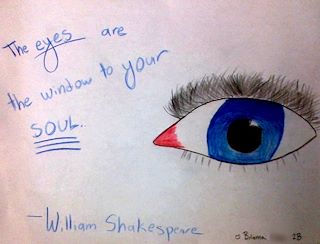 The eyes are
the window to your
SOUL.
-William Shakespeare
2B